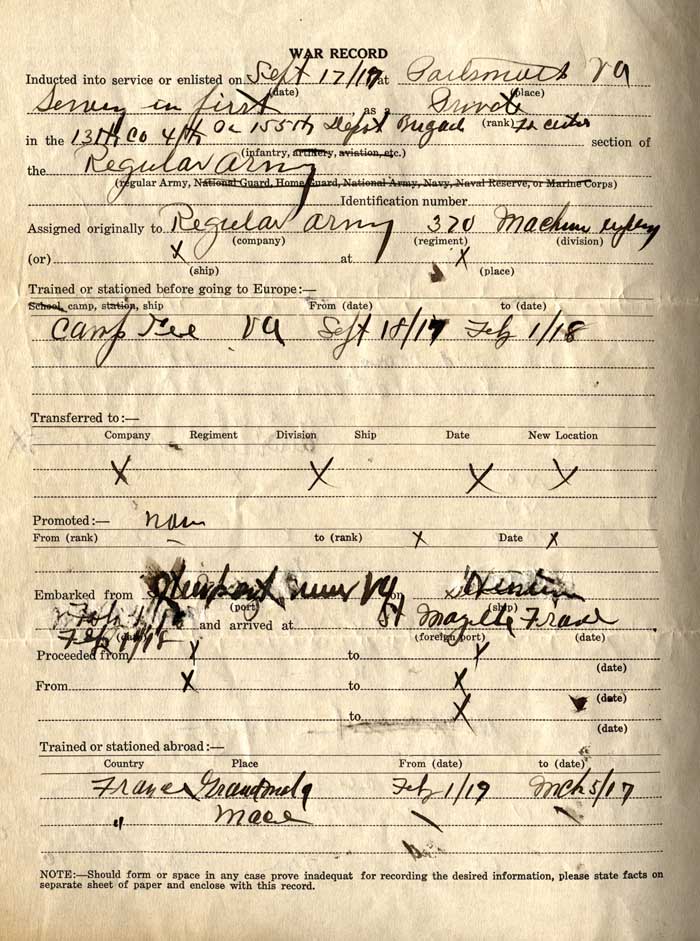 WAR RECORD
Inducted into service or enlisted on Sept 17/17 at Va
(date) (place)
in first as a Private
(rank)
in the 13th Co 4th 155th Depot section of
(infantry, artillery, aviation, etc.)
the Regular Army
(regular Army, National Guard, Home Guard, National Army, Navy, Naval Reserve, or Marine Corps)
Identification number
Assigned originally to Regular army 370 Machine
(company) (regiment) (division)
(or) X at X
(ship) (place)
Trained or stationed before going to Europe:—
School, camp, station, ship From (date) to (date)
Camp Lee Va Sept 18/17 Feb 1/18
Transferred to:—
Company Regiment Division Ship Date New Location
X X X X
Promoted:—
From (rank) to (rank) X Date X
Embarked from news Va on
(port) (ship)
Feb 1/18 and arrived at St
(date) (foreign port) (date)
Proceeded from X to X
(date)
From X to X
(date)
to X
(date)
Trained or stationed abroad:—
Country Place From (date) to (date)
France Feb 1/19 Mch 5/17
"
NOTE:—Should form or space in any case prove inadequat for recording the desired information, please state facts on
separate sheet of paper and enclose with this record.